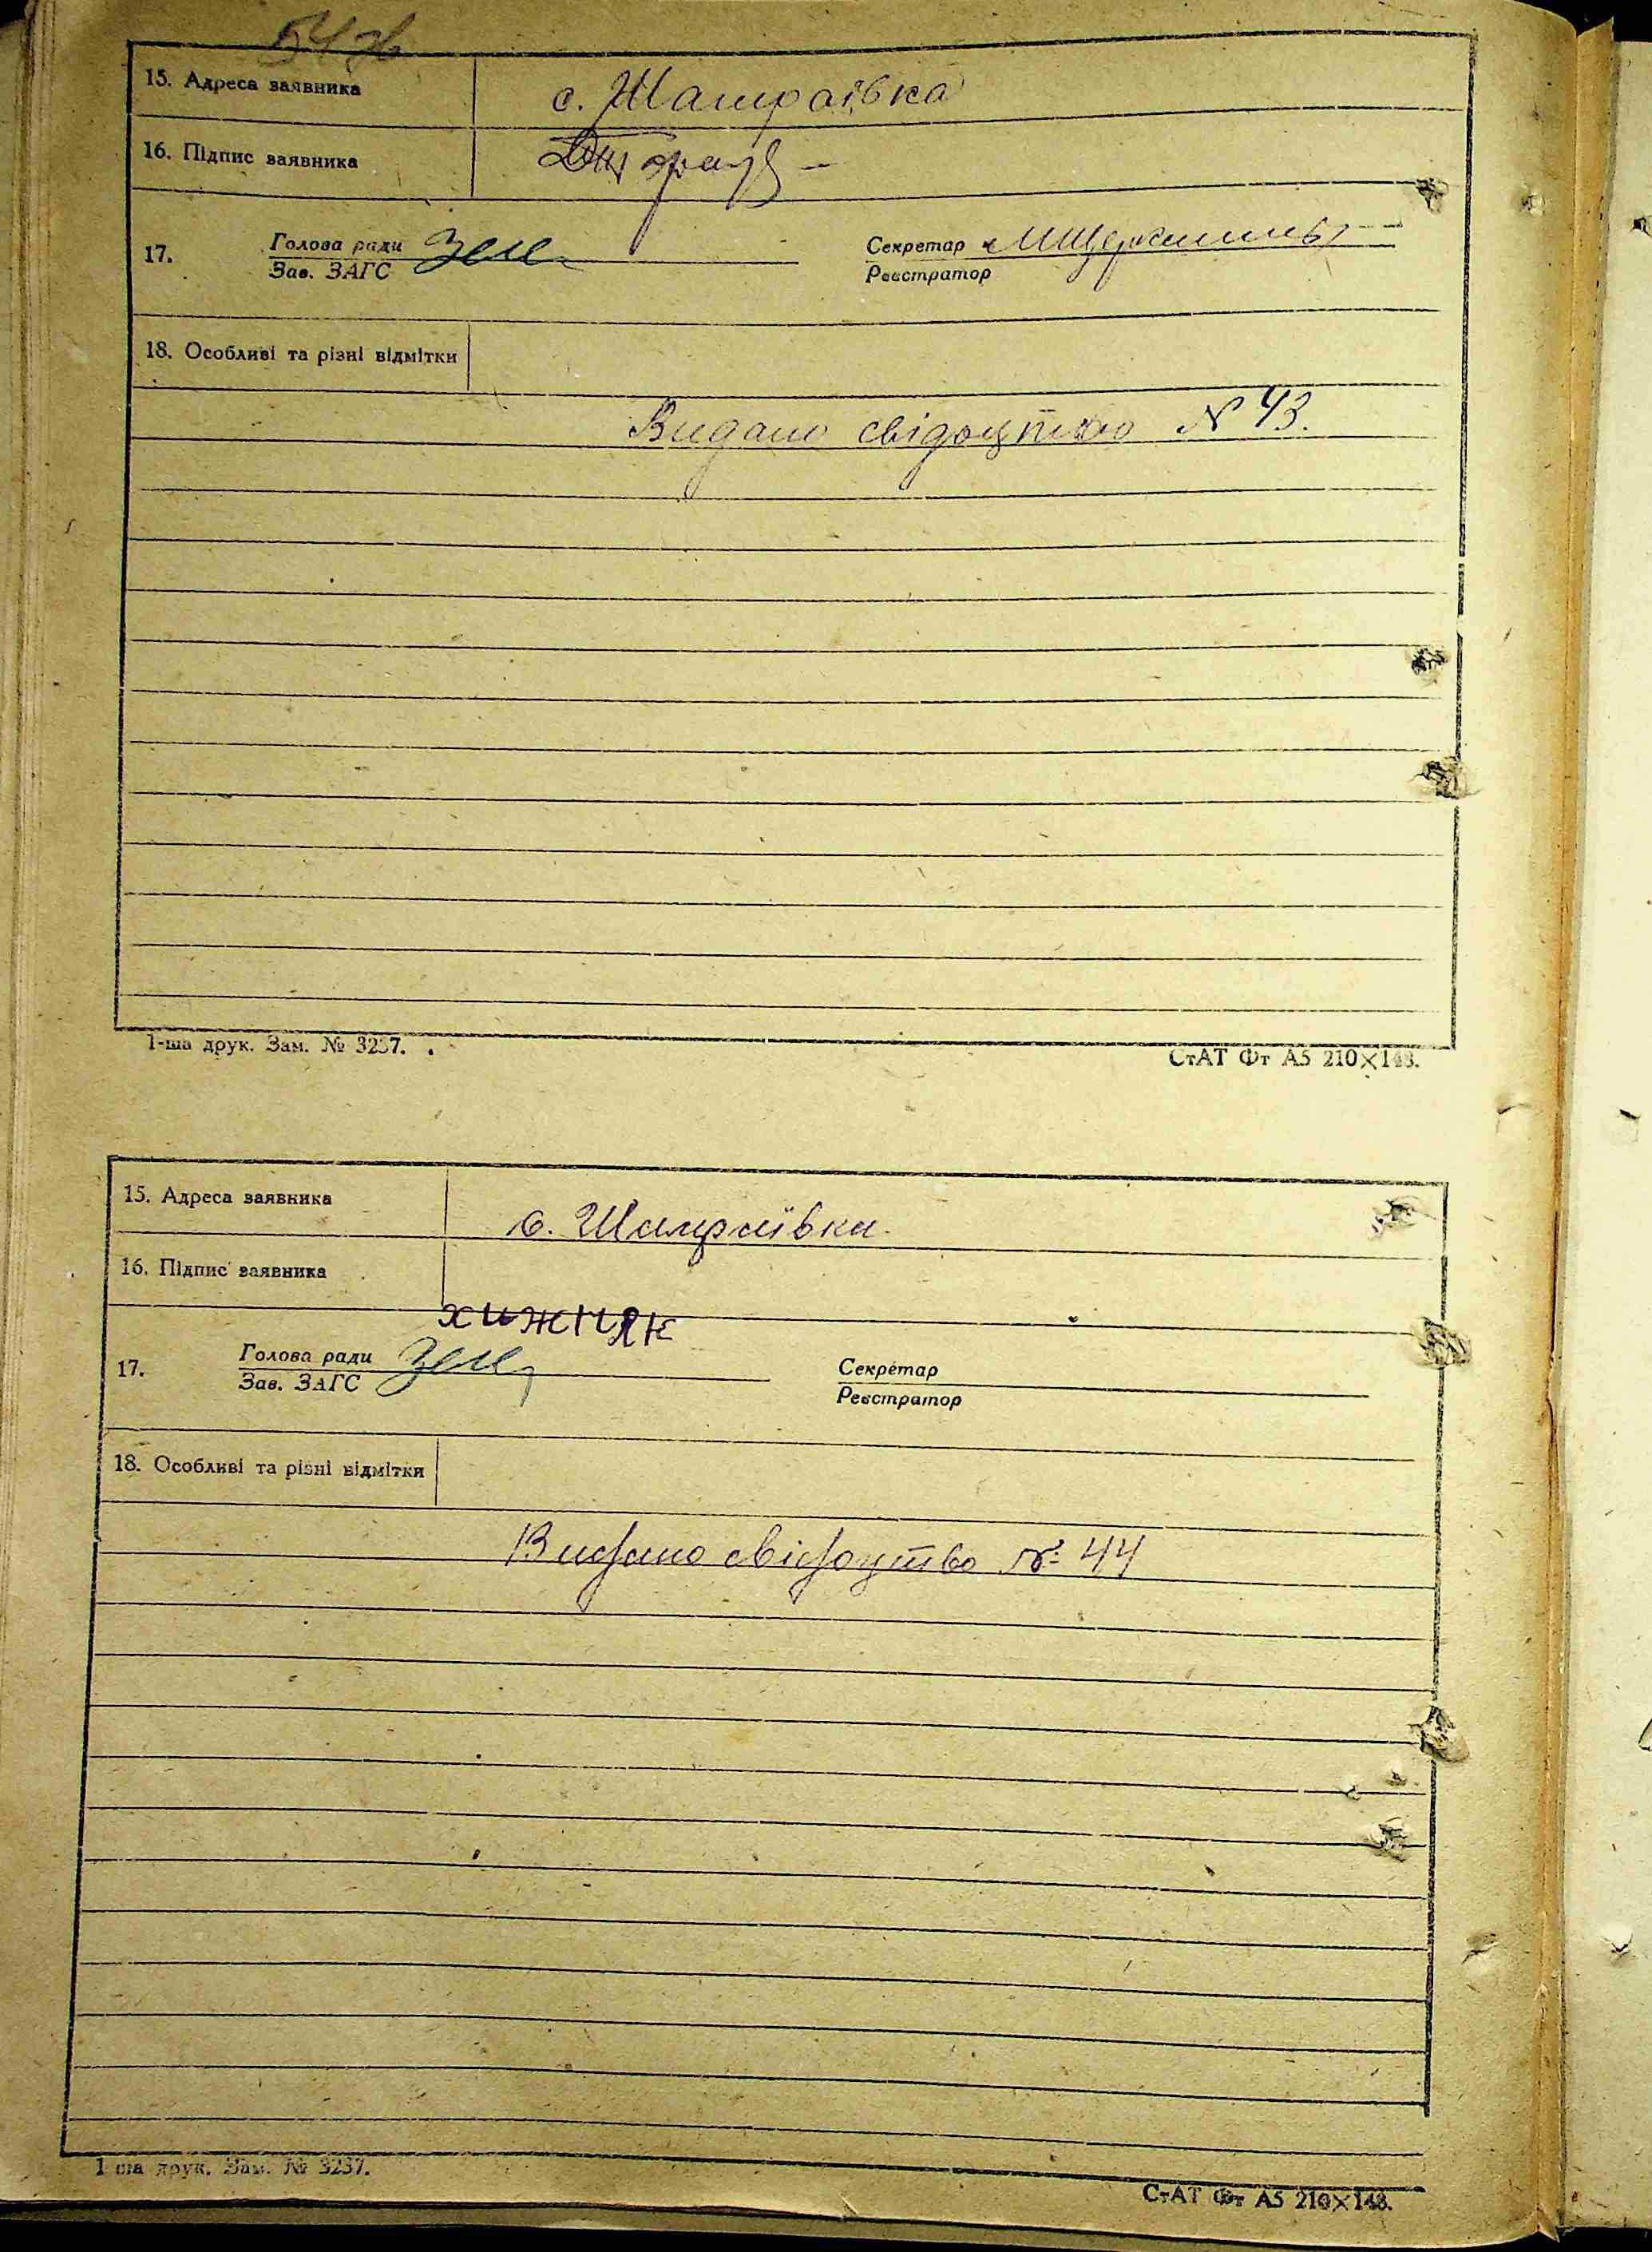 15. Адреса заявника с. Шамраївка
16. Підпис заявника
17. Голова ради Зеле Секретар
Зав. ЗАГС Реєстратор
18. Особливі та різні відмітки
Видано свідоцтво № 43.
1-ша друк. Зам. № 3237.
СтАТ Фт А5 210×148.
15. Адреса заявника с. Шамраївка
16. Підпис заявника
хижняк
17. Голова ради Зеле Секретар
Зав. ЗАГС Реєстратор
18. Особливі та різні відмітки
Видано свідоцтво № 44
1 ша друк. Зам. № 3237.
СтАТ Фт А5 210×148.